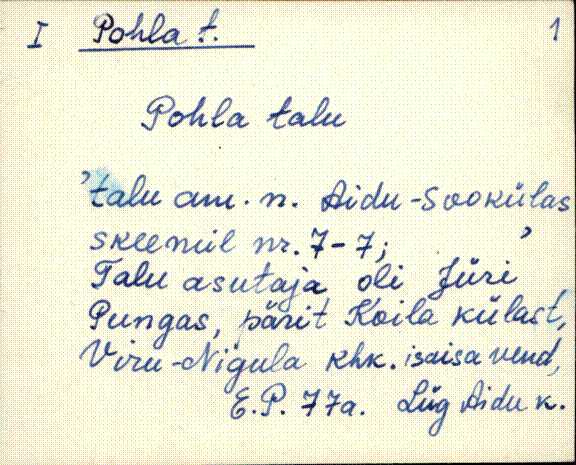 I Pohla t. 1
Pohla talu
'talu am. n. Aidu-Sookülas
skeemil nr. 7-7;'
Talu asutaja oli Jüri
Pungas, pärit Koila külast,
Viru-Nigula khk. isaisa vend,
E.P. 77a. Lüg Aidu k.